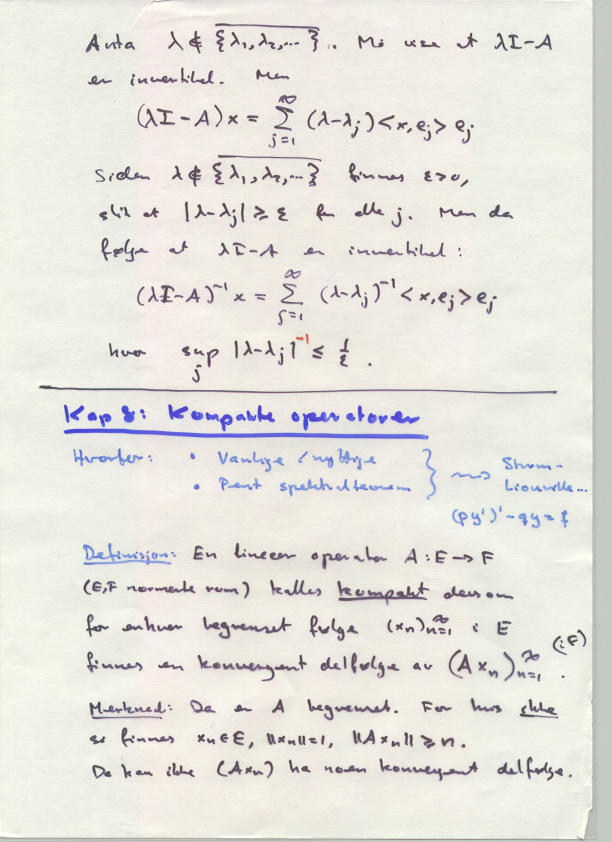 Anta λ ∉ \overline{{λ₁, λ₂, ...}}. Må vise at λI-A
er invertibel. Men
(λI-A)x = ∑_{j=1}^{∞} (λ-λⱼ)<x,eⱼ> eⱼ
Siden λ ∉ \overline{{λ₁, λ₂, ...}} finnes ε>0,
slik at |λ-λⱼ| ≥ ε for alle j. Men da
følger at λI-A er invertibel:
(λI-A)⁻¹x = ∑_{j=1}^{∞} (λ-λⱼ)⁻¹<x,eⱼ>eⱼ
hvor sup_j |λ-λⱼ|⁻¹ ≤ 1/ε .
Kap 8: Kompakte operatorer
Hvorfor: • Vanlige / nyttige
• Pent spektralteorem } ⇝ Sturm-
Liouville...
(py')'-qy=f
Definisjon: En lineær operator A : E → F
(E,F normerte rom) kalles kompakt dersom
for enhver begrenset følge (xₙ)_{n=1}^{∞} i E
finnes en konvergent delfølge av (Axₙ)_{n=1}^{∞} (i F).
Merknad: Da er A begrenset. For hvis ikke
så finnes xₙ∈E, ||xₙ||=1, ||Axₙ|| ≥ n.
Da kan ikke (Axₙ) ha noen konvergent delfølge.